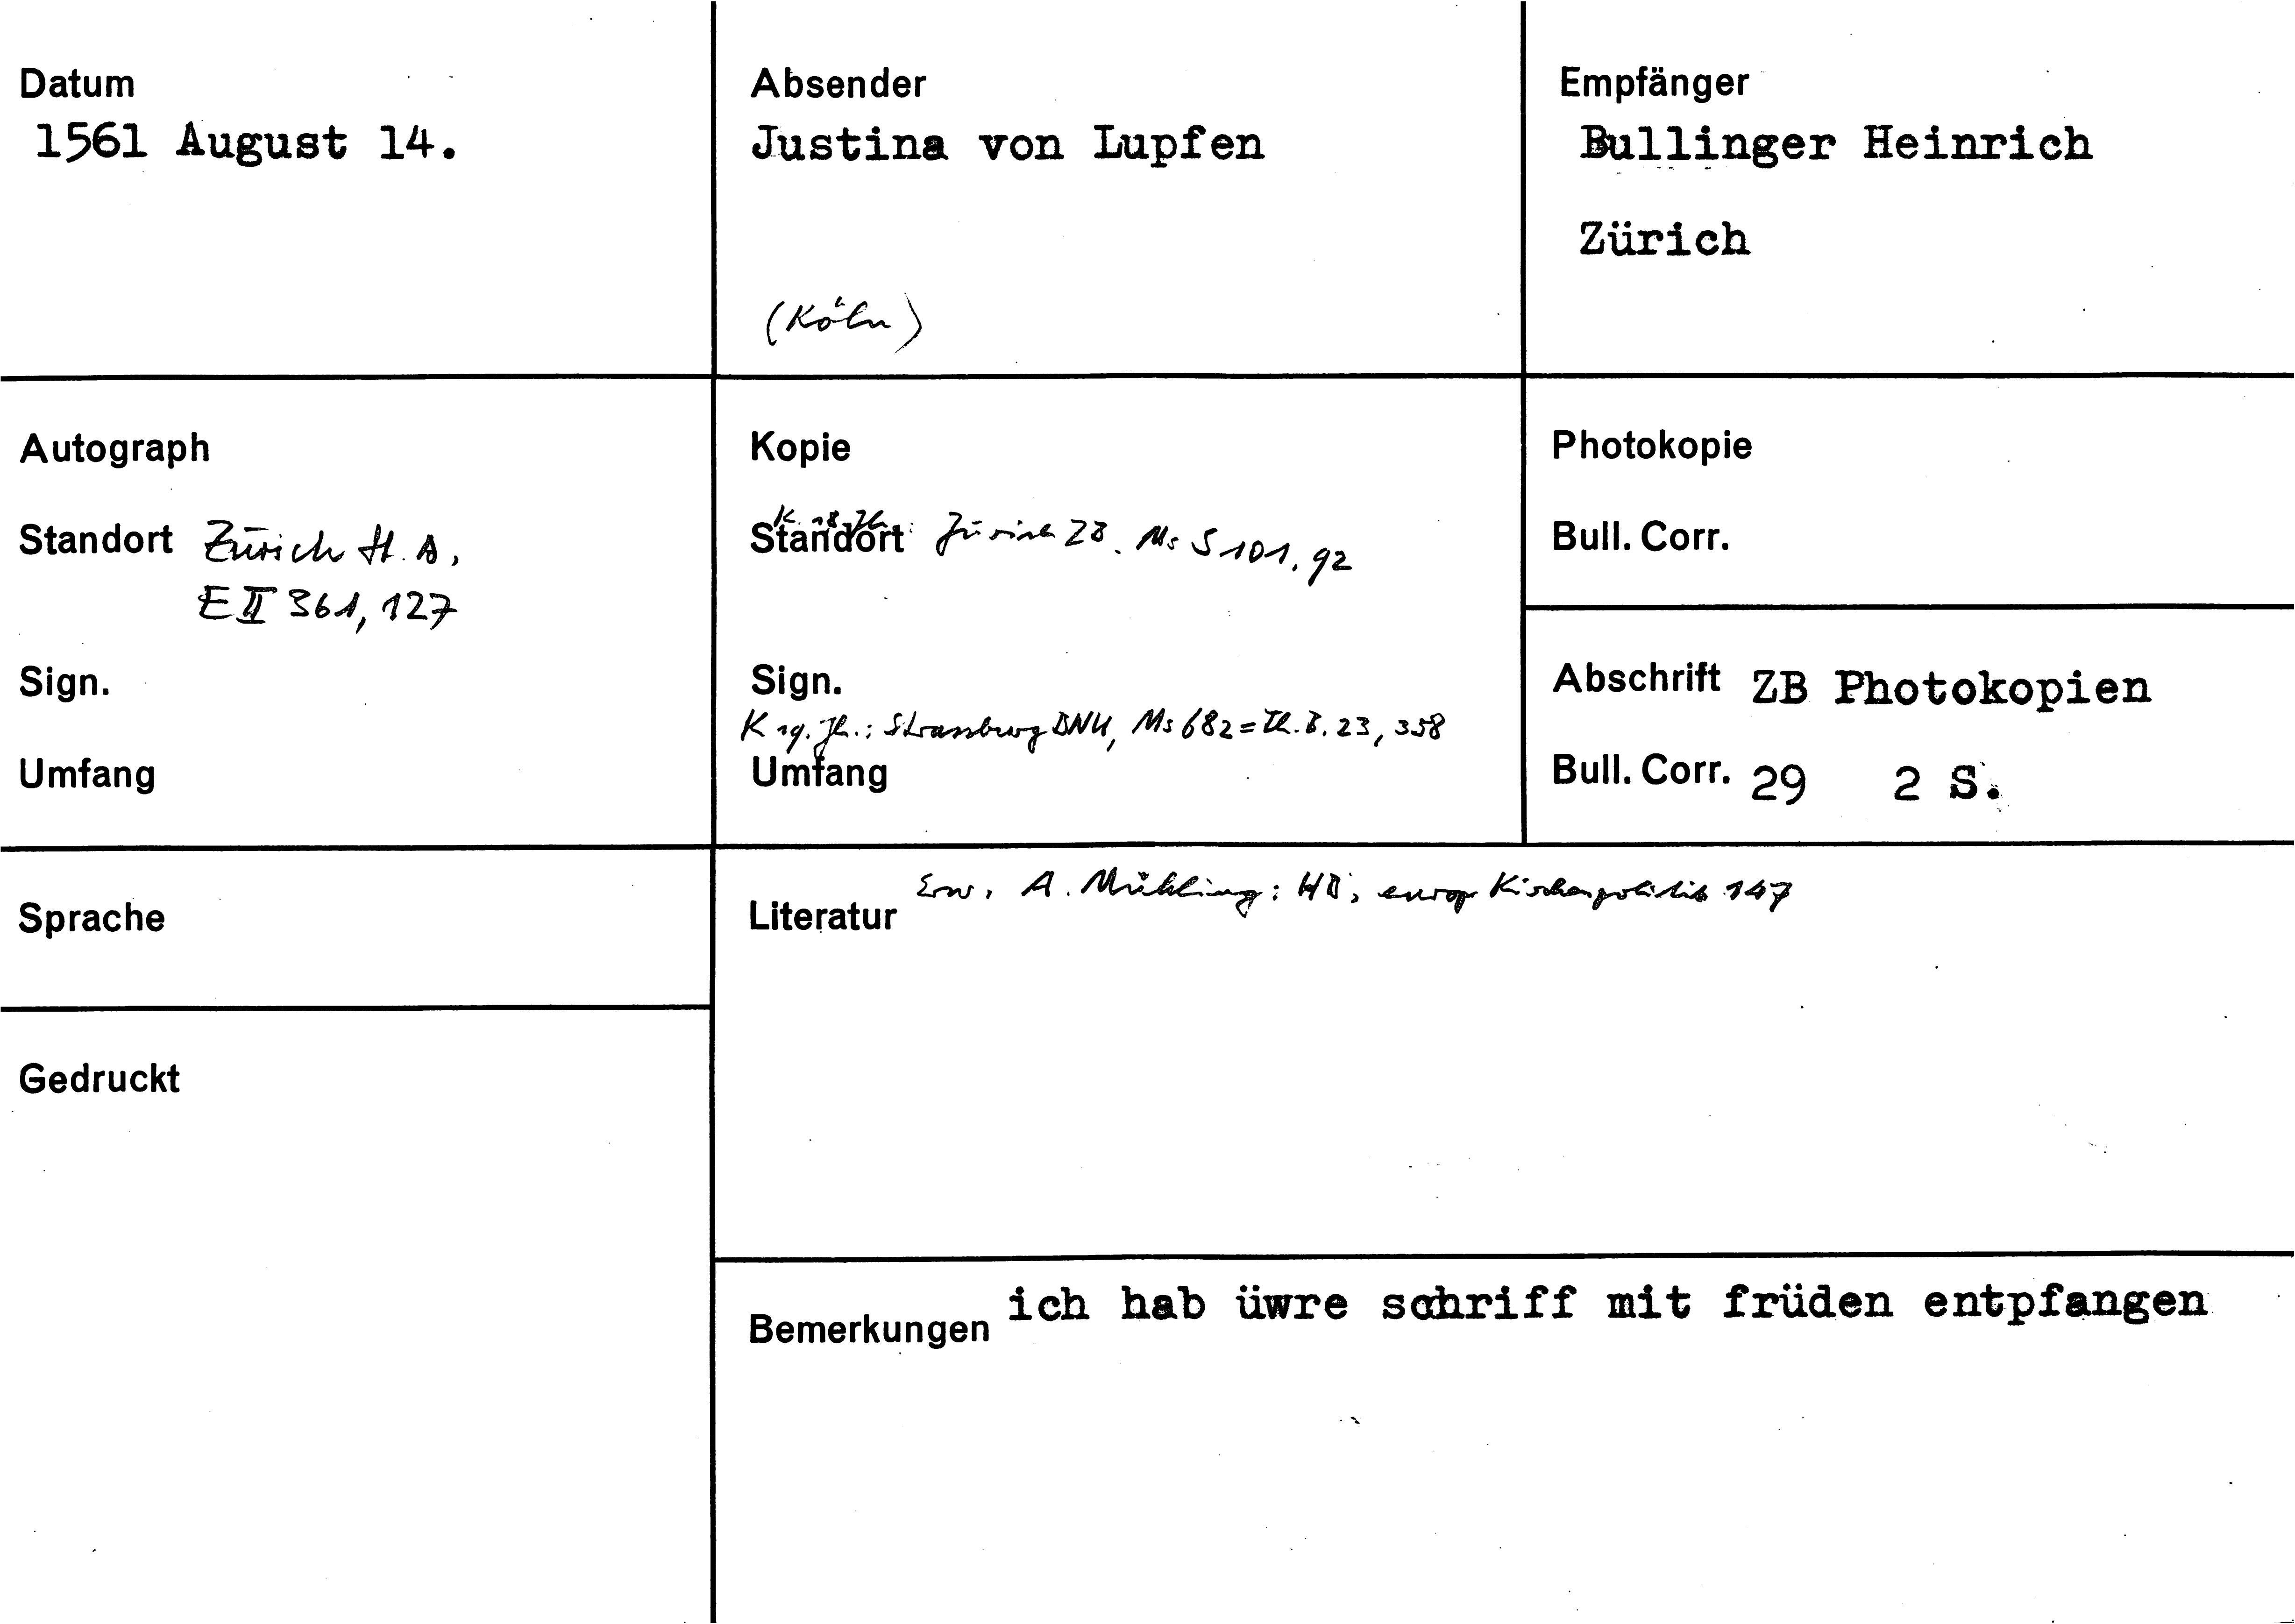 Datum
1561 August 14.
Absender
Justina von Lupfen
(Köln)
Empfänger
Bullinger Heinrich
Zürich
Autograph
Standort Zürich St. A,
E II 361, 127
Sign.
Umfang
Kopie
K. 18. Jh.:
Standort Zürich ZB. Ms S 101, 92
Sign.
K 19. Jh.: Strassburg BNU, Ms 682 = Th. B. 23, 358
Umfang
Photokopie
Bull. Corr.
Abschrift ZB Photokopien
Bull. Corr. 29 2 S.
Sprache
Gedruckt
Literatur Erw. A. Mühling: HB, europ Kirchenpolitik 147
Bemerkungen ich hab üwre schriff mit früden entpfangen